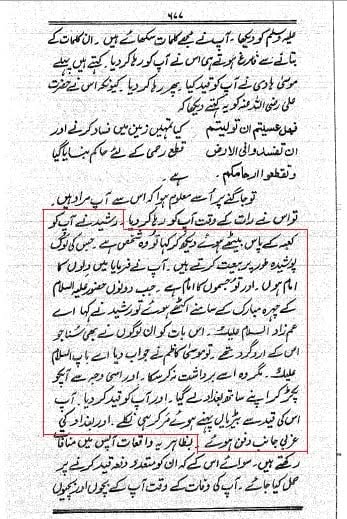 ۶۷۷
علیہ وسلم کو دیکھا۔ آپ نے مجھے کلمات سکھائے ہیں۔ ان کلمات کے
بتانے سے فارغ ہوتے ہی اس نے آپ کو رہا کر دیا۔ کہتے ہیں پہلے
موسیٰ ہادی نے آپ کو قید کیا۔ پھر رہا کر دیا۔ کیونکہ اس نے حضرت
علی رضی اللہ عنہ کو یہ کہتے دیکھا کہ
فهل عسيتم ان توليتم کیا تمہیں زمین میں فساد کرنے اور
ان تفسد وا فى الارض قطع رحمی کے لئے حاکم بنایا گیا
وتقطعوا ارحامكم ہے۔
تو جاگنے پر اُسے معلوم ہوا کہ اس سے آپ مراد ہیں۔
تو اس نے رات کے وقت آپ کو رہا کر دیا۔ رشید نے آپ کو
کعبہ کے پاس بیٹھے ہوئے دیکھ کر کہا تو وہ شخص ہے جس کی لوگ
پوشیدہ طور پر بیعت کرتے ہیں۔ آپ نے فرمایا میں دلوں کا
امام ہوں۔ اور تو جسموں کا امام ہے۔ جب دونوں حضور علیہ السلام
کے چہرہ مبارک کے سامنے اکٹھے ہوئے تو رشید نے کہا اے
عم زاد السلام علیک۔ اس بات کو ان لوگوں نے بھی سُنا جو
اس کے اردگرد تھے۔ تو موسیٰ کاظم نے جواب دیا اے باپ السلام
علیک۔ مگر وہ اسے برداشت نہ کر سکا۔ اور اسی وجہ سے آپکو
پکڑ کر اپنے ساتھ بغداد لے گیا۔ اور آپ کو قید کر دیا۔ آپ
اس کی قید سے بیڑیاں پہنے ہوئے مر کر ہی نکلے۔ اور بغداد کی
غربی جانب دفن ہوئے۔ بظاہر یہ واقعات آپس میں منافات
رکھتے ہیں۔ سوائے اس کے کہ ان کو متعدد دفعہ قید کرنے پر
حمل کیا جائے۔ آپ کی وفات کے وقت آپ کے بچوں اور بچیوں